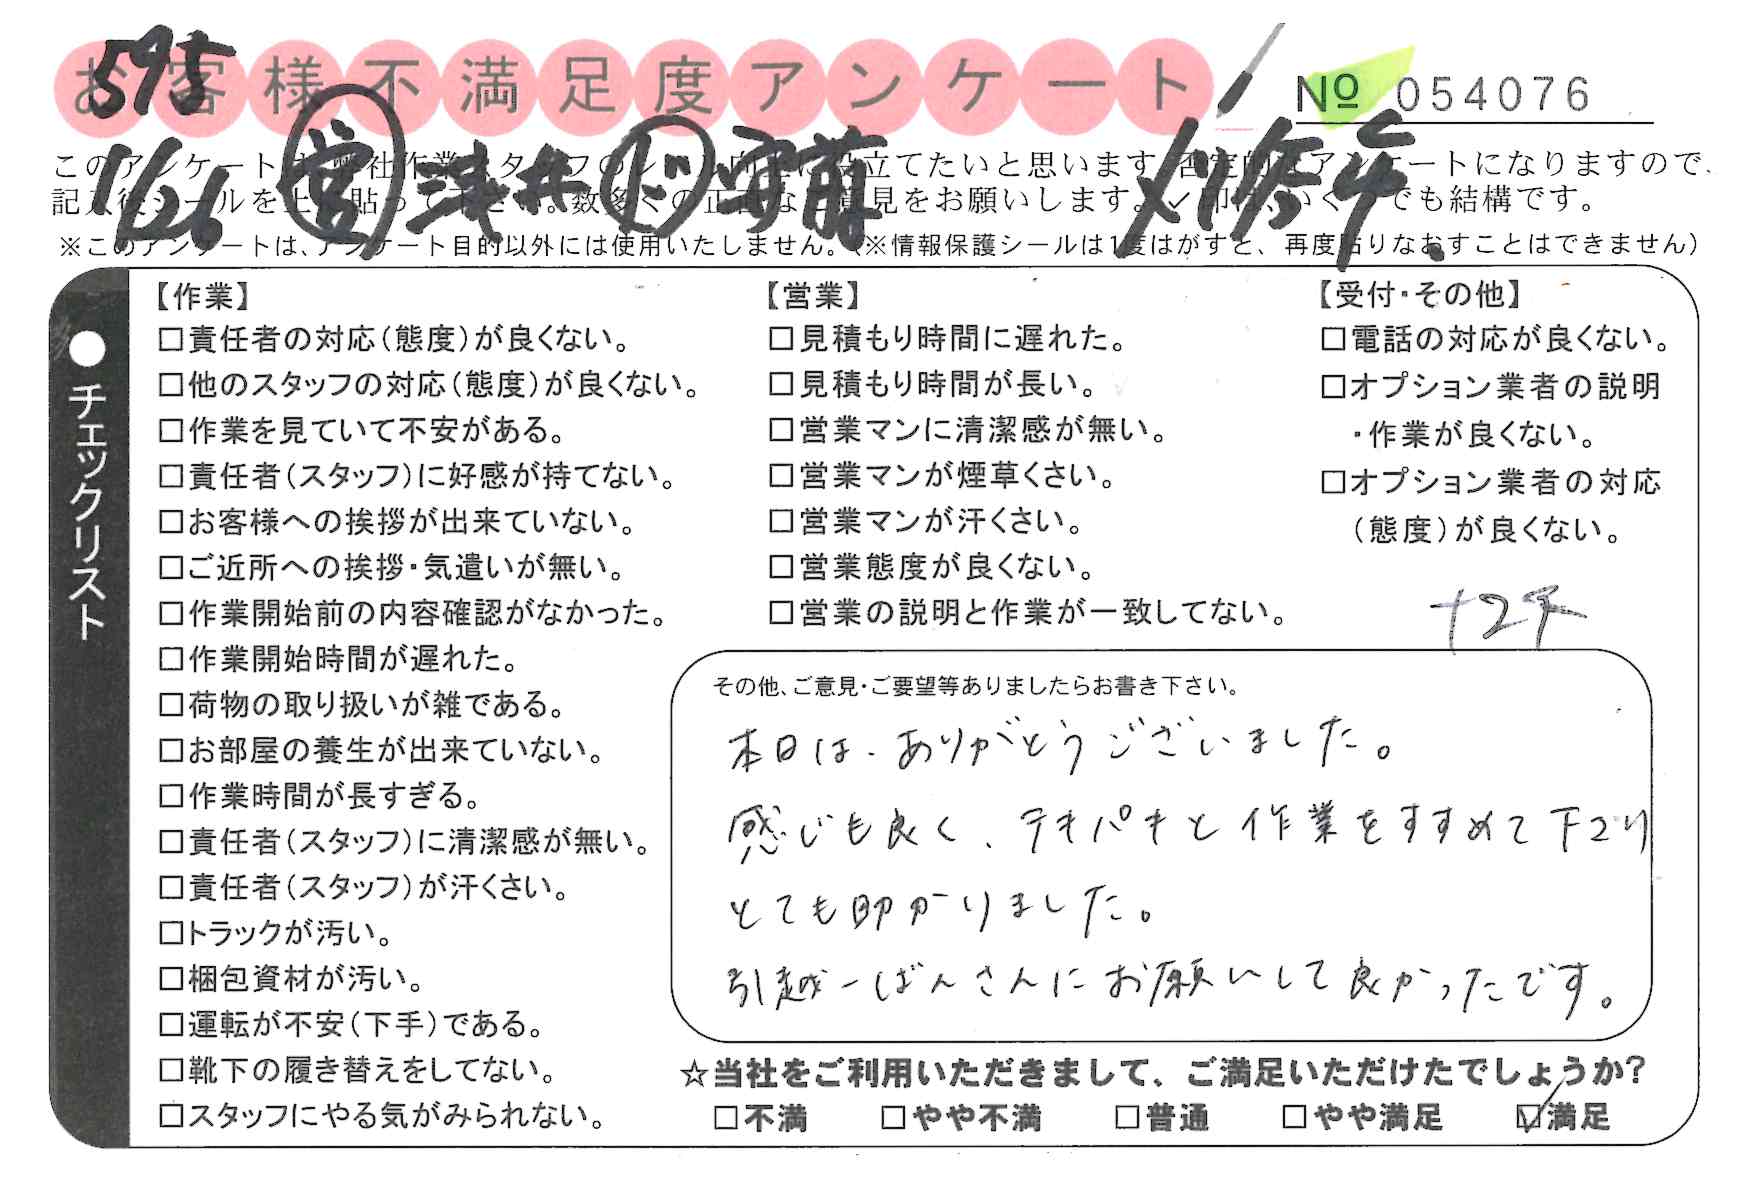 595
お客様不満足度アンケート
№ 054076
1/26 営 浅井 ド 安藤
このアンケートは、弊社作業スタッフのレベル向上に役立てたいと思います。否定的なアンケートになりますので、
記入後シールを上に貼って下さい。数多くの正直なご意見をお願いします。✓印は、いくつでも結構です。
※このアンケートは、アンケート目的以外には使用いたしません。(※情報保護シールは1度はがすと、再度貼りなおすことはできません)
●チェックリスト
【作業】
□責任者の対応(態度)が良くない。
□他のスタッフの対応(態度)が良くない。
□作業を見ていて不安がある。
□責任者(スタッフ)に好感が持てない。
□お客様への挨拶が出来ていない。
□ご近所への挨拶・気遣いが無い。
□作業開始前の内容確認がなかった。
□作業開始時間が遅れた。
□荷物の取り扱いが雑である。
□お部屋の養生が出来ていない。
□作業時間が長すぎる。
□責任者(スタッフ)に清潔感が無い。
□責任者(スタッフ)が汗くさい。
□トラックが汚い。
□梱包資材が汚い。
□運転が不安(下手)である。
□靴下の履き替えをしてない。
□スタッフにやる気がみられない。
【営業】
□見積もり時間に遅れた。
□見積もり時間が長い。
□営業マンに清潔感が無い。
□営業マンが煙草くさい。
□営業マンが汗くさい。
□営業態度が良くない。
□営業の説明と作業が一致してない。
【受付・その他】
□電話の対応が良くない。
□オプション業者の説明
・作業が良くない。
□オプション業者の対応
(態度)が良くない。
その他、ご意見・ご要望等ありましたらお書き下さい。
本日は、ありがとうございました。
感じも良く、テキパキと作業をすすめて下さり
とても助かりました。
引越一ばんさんにお願いして良かったです。
☆当社をご利用いただきまして、ご満足いただけたでしょうか?
□不満 □やや不満 □普通 □やや満足 ☑満足